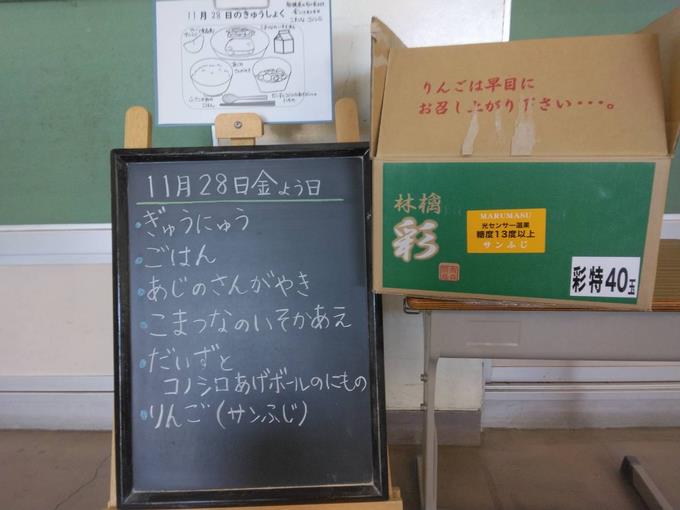 11月28日のきゅうしょく
りんごは早目に
お召し上がりださい・・・。
林檎
彩
MARUMASU
光センサー選果
糖度13度以上
サンふじ
彩特40玉
11月28日金よう日
・ぎゅうにゅう
・ごはん
・あじのさんがやき
・こまつなのいそかあえ
・だいずと
コノシロあげボールのにもの
・りんご(サンふじ)